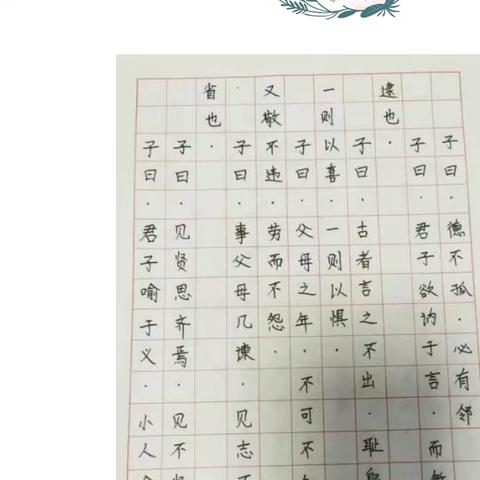 子曰·德不孤·必有邻
子曰·君子欲讷于言·而敏
逮也·
子曰·古者言之不出·耻躬
一则以喜·一则以惧·
子曰·父母之年·不可不
又敬不违·劳而不怨·
子曰·事父母几谏·见志不
省也·
子曰·见贤思齐焉·见不贤
子曰·君子喻于义·小人